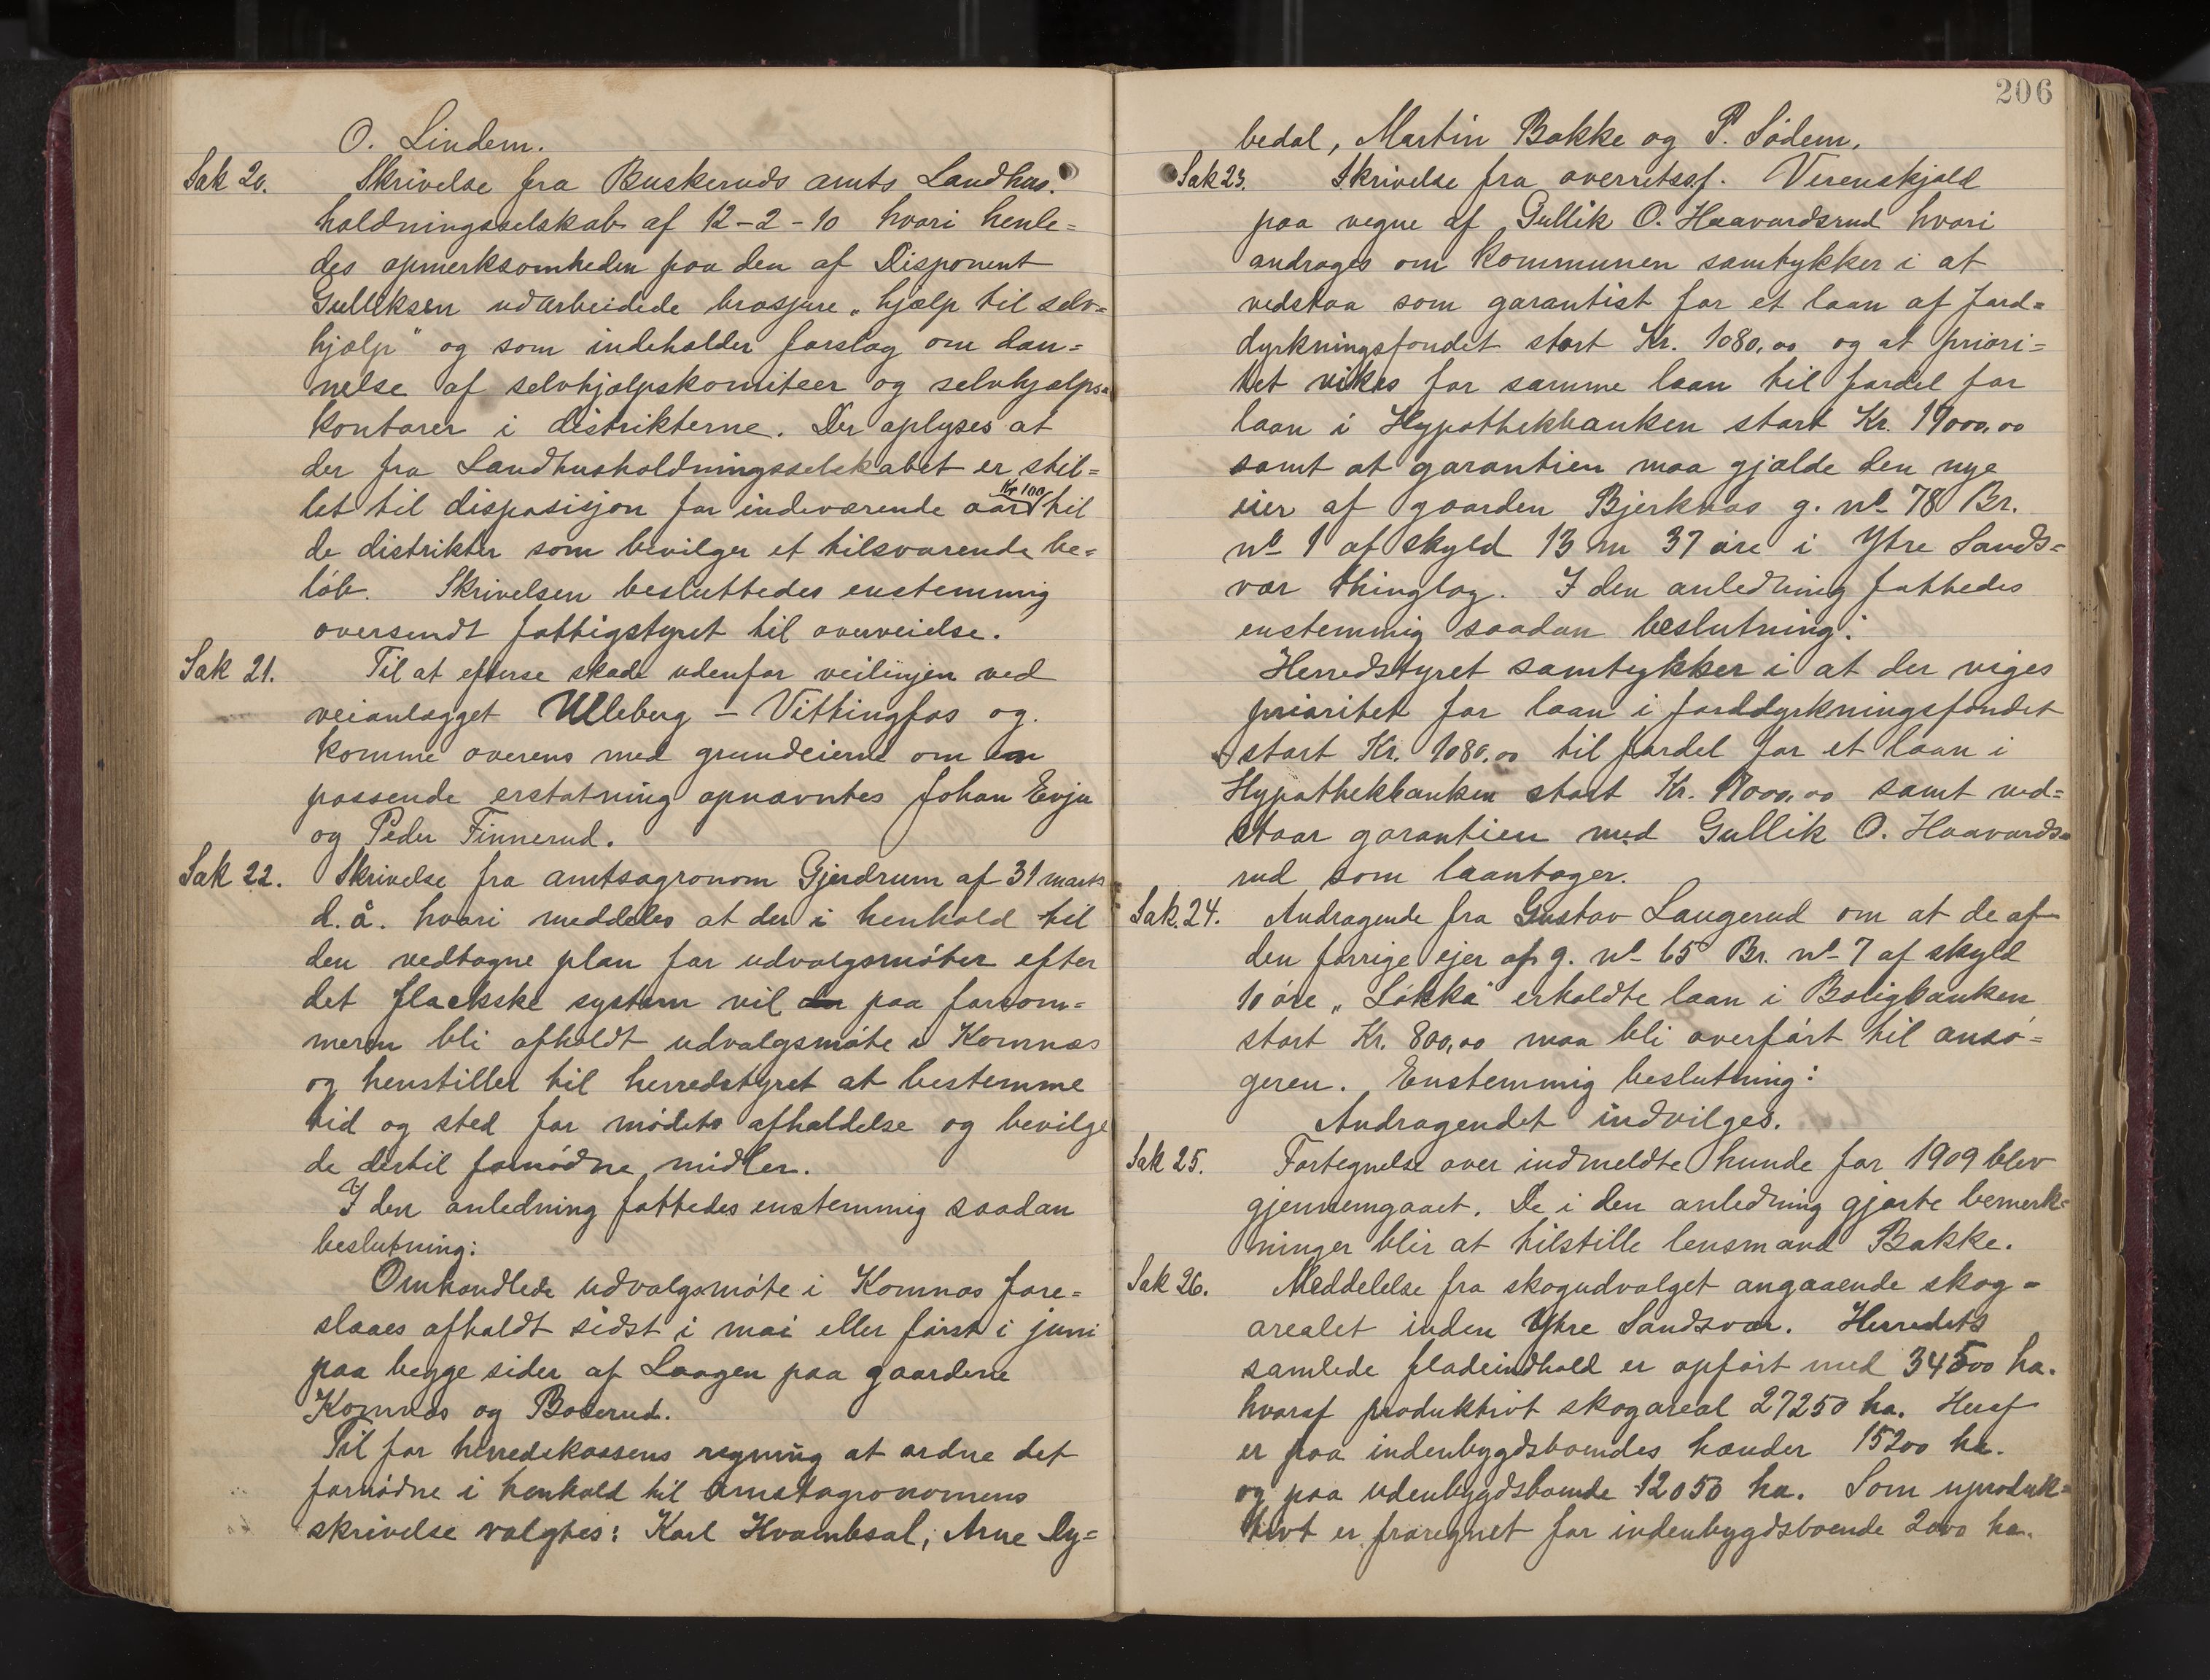 O. Lindem.
Sak 20. Skrivelse fra Buskeruds amts Landhus.
holdningsselskab af 12-2-10 hvori henle=
des opmerksomheden paa den af Disponent
Gulliksen udarbeidede brosjure „hjælp til selv=
hjælp" og som indeholder forslag om dan=
nelse af selvhjælpskomiteer og selvhjælps=
kontorer i distrikterne. Der oplyses at
der fra Landhusholdningsselskabet er stil=
let til disposisjon for indeværende aar Kr 100 til
de distrikter som bevilger et tilsvarende be=
løb. Skrivelsen besluttedes enstemmig
oversendt fattigstyret til overveielse.
Sak 21. Til at efterse skade udenfor veilinjen ved
veianlægget Ulleberg – Vittingfos og
komme overens med grundeierne om en
passende erstatning opnævntes Johan Evju
og Peder Finnerud.
Sak 22. Skrivelse fra amtsagronom Gjerdrum af 31 marts
d. å. hvori meddeles at der i henhold til
den vedtagne plan for udvalgsmøter efter
det flackske system vil paa forsom=
meren bli afholdt udvalgsmøte i Komnæs
og henstiller til herredstyret at bestemme
tid og sted for mødets afholdelse og bevilge
de dertil fornødne midler.
I den anledning fattedes enstemmig saadan
beslutning:
Omhandlede udvalgsmøte i Komnæs fore=
slaaes afholdt sidst i mai eller først i juni
paa begge sider af Laagen paa gaardene
Komnæs og Boserud.
Til for herredskassens regning at ordne det
fornødne i henhold til amtsagronomens
skrivelse valgtes: Karl Hvambsal, Arne Ly=
206
bedal, Martin Bakke og P. Sødem.
Sak 23. Skrivelse fra overretssf. Verenskjold
paa vegne af Gullik O. Haavardsrud hvori
andrages om kommunen samtykker i at
vedstaa som garantist for et laan af Jord=
dyrkningsfondet stort Kr. 1080,00 og at priori=
tet vikes for samme laan til fordel for
laan i Hypothekbanken stort Kr. 17000,00
samt at garantien maa gjælde den nye
eier af gaarden Bjerknæs g. no 78 Br.
no 1 af skyld 13 m 37 øre i Ytre Sands=
vær thinglag. I den anledning fattedes
enstemmig saadan beslutning:
Herredstyret samtykker i at der viges
prioritet for laan i jorddyrkningsfondet
stort Kr. 1080,00 til fordel for et laan i
Hypothekbanken stort Kr. 17000,00 samt ved=
staar garantien med Gullik O. Haavards=
rud som laantager.
Sak. 24. Andragende fra Gustav Laugerud om at de af
den forrige ejer af g. no 65 Br. no 7 af skyld
10 øre „Løkka" erholdte laan i Boligbanken
stort Kr. 800,00 maa bli overført til ansø=
geren. Enstemmig beslutning:
Andragendet indvilges.
Sak 25. Fortegnelse over indmeldte hunde for 1909 blev
gjennemgaaet. De i den anledning gjorte bemerk=
ninger blir at tilstille lensmand Bakke.
Sak 26. Meddelelse fra skogudvalget angaaende skog=
arealet inden Ytre Sandsvær. Herredets
samlede fladeindhold er opført med 34500 ha.
hvoraf produktivt skogareal 27250 ha. Heraf
er paa indenbygdsboendes hænder 15200 ha.
og paa udenbygdsboende 12050 ha. Som uproduk=
tivt er fraregnet for indenbygdsboende 2000 ha.